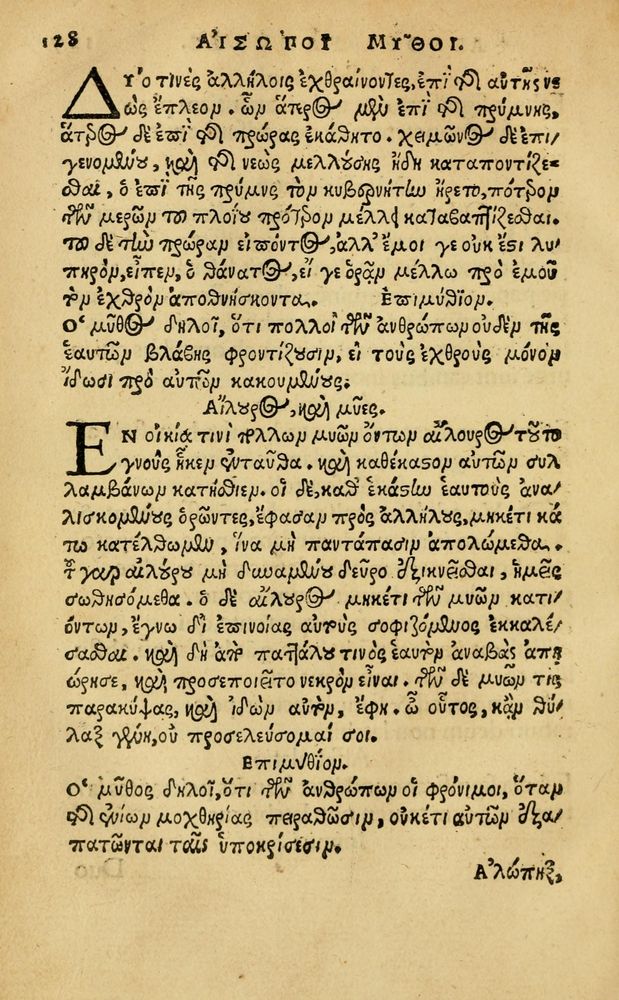 128 ΑΙΣΩΠΟΥ ΜΥ͂ΘΟΙ.
ΔΥ´ο τινὲς ἀλλήλοις ἐχθραίνοντες, ἐπὶ τῆς αὐτῆς νε
ὼς ἔπλεον. ὧν ἅτερος μὲν ἐπὶ τῆς πρύμνης,
ἅτερος δὲ ἐπὶ τῆς πρώρας ἐκάθητο. χειμῶνος δὲ ἐπι/
γενομένου, καὶ τῆς νεὼς μελλούσης ἤδη καταποντίζε=
σθαι, ὁ ἐπὶ τῆς πρύμνης τὸν κυβερνήτην ἤρετο, πότερον
τῶν μερῶν τοῦ πλοίου πρότερον μέλλει καταβαπτίζεσθαι.
τοῦ δὲ τὴν πρώραν εἰπόντος, ἀλλ' ἔμοιγε οὐκ ἔστι λυ/
πηρὸν, εἶπεν, ὁ θάνατος, εἴγε ὁρᾷν μέλλω πρὸ ἐμοῦ
τὸν ἐχθρὸν ἀποθνήσκοντα. Ἐπιμύθιον.
Ὁ μῦθος δηλοῖ, ὅτι πολλοὶ τῶν ἀνθρώπων οὐδὲν τῆς
ἑαυτῶν βλάβης φροντίζουσιν, εἰ τοὺς ἐχθροὺς μόνον
ἴδωσι πρὸ αὐτῶν κακουμένους.
Αἴλουρος, καὶ μῦες.
ΕΝ οἰκίᾳ τινὶ πολλῶν μυῶν ὄντων αἴλουρος τοῦτο
γνοὺς ἧκεν ἐνταῦθα. καὶ καθέκαστον αὐτῶν συλ
λαμβάνων κατήσθιεν. οἱ δὲ, καθ' ἑκάστην ἑαυτοὺς ἀνα/
λισκομένους ὁρῶντες, ἔφασαν πρὸς ἀλλήλους, μηκέτι κά
τω κατέλθωμεν, ἵνα μὴ παντάπασιν ἀπολώμεθα.
τοῦ γὰρ αἰλούρου μὴ δυναμένου δεῦρο ἐξικνεῖσθαι, ἡμεῖς
σωθησόμεθα. ὁ δὲ αἴλουρος μηκέτι τῶν μυῶν κατι/
όντων, ἔγνω δι' ἐπινοίας αὐτοὺς σοφιζόμενος ἐκκαλέ/
σασθαι. καὶ δὴ ἀπὸ παττάλου τινὸς ἑαυτὸν ἀναβὰς ἀπη
ώρησε, καὶ προσεποιεῖτο νεκρὸν εἶναι. τῶν δὲ μυῶν τις
παρακύψας, καὶ ἰδὼν αὐτὸν, ἔφη. ὦ οὗτος, κἂν θύ/
λαξ γένῃ, οὐ προσελεύσομαί σοι.
Ἐπιμύθιον.
Ὁ μῦθος δηλοῖ, ὅτι τῶν ἀνθρώπων οἱ φρόνιμοι, ὅταν
τῆς ἐνίων μοχθηρίας πειραθῶσιν, οὐκέτι αὐτῶν ἐξα/
πατῶνται ταῖς ὑποκρίσεσιν.
Ἀλώπηξ,